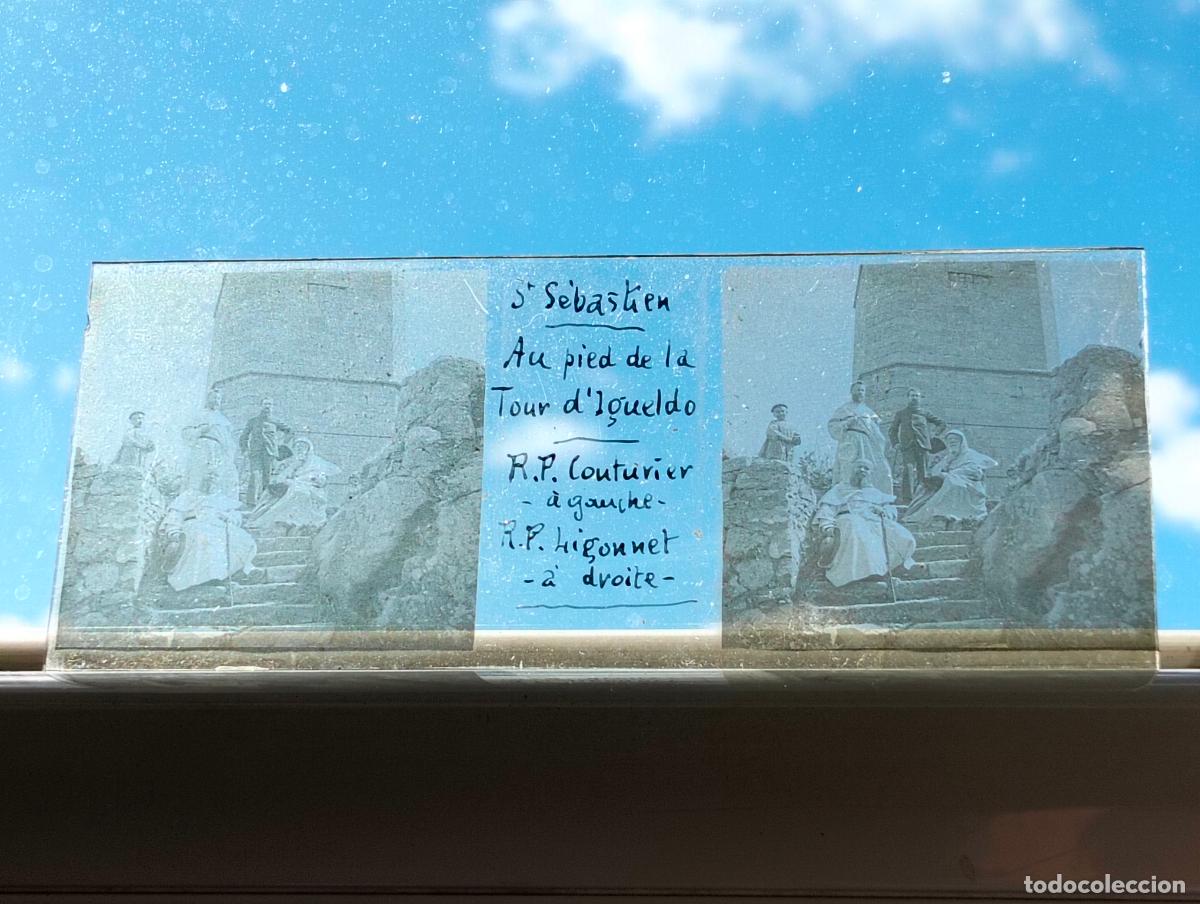 St Sébastien
Au pied de la
Tour d'Igueldo
R.P. Couturier
- à gauche -
R.P. Ligonnet
- à droite -
todocoleccion